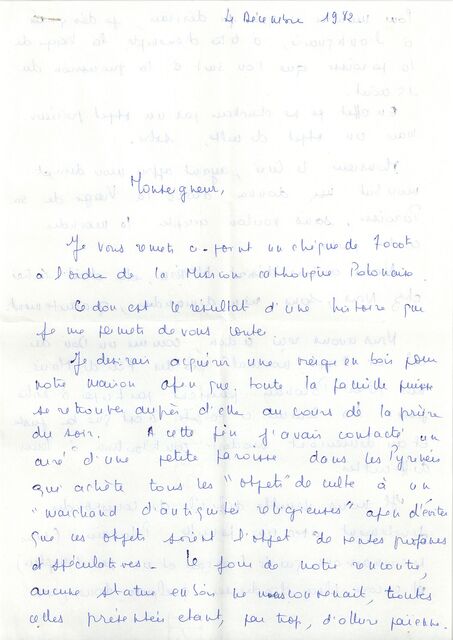 4 Décembre 1982.
Monseigneur,
Je vous remets ci-joint un chèque de 7000F
à l'ordre de la Mission catholique Polonaise.
Ce don est le résultat d'une histoire que
je me permets de vous conter.
Je desirais acquérir une vierge en bois pour
notre maison afin que toute la famille puisse
se retrouver auprès d'elle au cours de la prière
du soir. A cette fin j'avais contacté un
curé d'une petite paroisse dans les Pyrénées
qui achète tous les "objets" de culte à un
"marchand d'antiquités religieuses" afin d'éviter
que ces objets soient l'objet de ventes profanes
et spéculatives - Le jour de notre rencontre,
aucune statue en bois ne nous convenait, toutes
celles présentées etant, par trop, d'allure païenne.